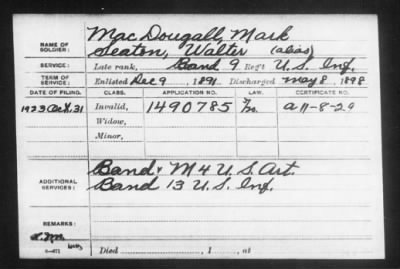 NAME OF SOLDIER: MacDougall, Mark
Seaton, Walter (alias)
SERVICE: Late rank, Band 9 Reg't U.S. Inf.
TERM OF SERVICE: Enlisted Dec 9, 1891. Discharged May 8, 1898
DATE OF FILING. CLASS. APPLICATION NO. LAW. CERTIFICATE NO.
1923 Oct. 31 Invalid, 1490785 A 11-8-29
Widow,
Minor,
ADDITIONAL SERVICES: Band M 4 U.S. Art.
Band 13 U.S. Inf.
REMARKS:
Died , 1 , at